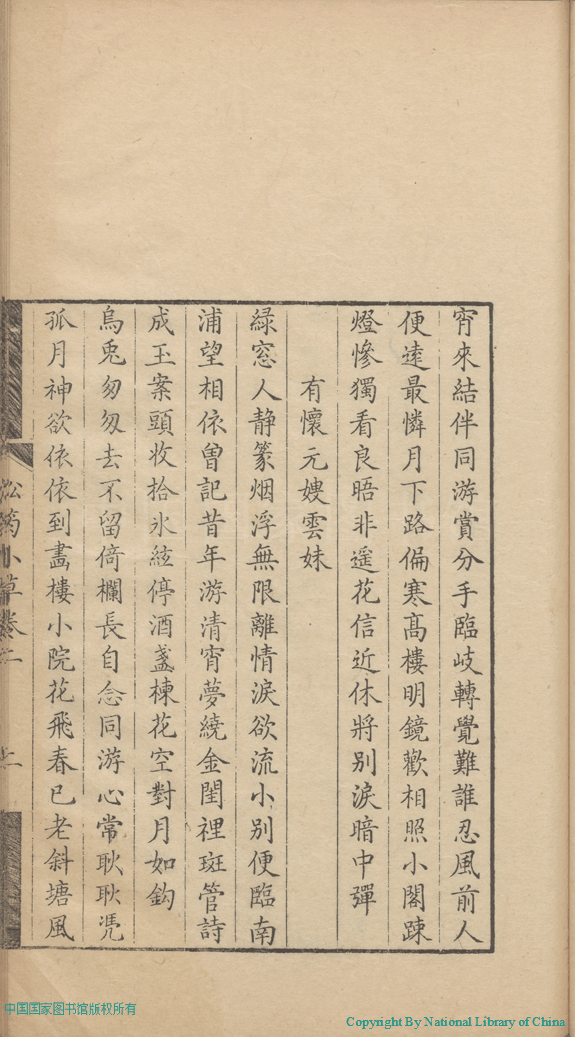 宵來結伴同游賞分手臨岐轉覺難誰忍風前人
便遠最憐月下路偏寒高樓明鏡歡相照小閣踈
燈慘獨看良晤非遥花信近休將别淚暗中彈
有懷元嫂雲妹
緑窓人静篆烟浮無限離情淚欲流小别便臨南
浦望相依曾記昔年游清宵夢繞金閨裡斑管詩
成玉案頭收拾氷絃停酒盞楝花空對月如鈎
烏兎匆匆去不留倚欄長自念同游心常耿耿凴
孤月神欲依依到畫樓小院花飛春已老斜塘風
松筠小草卷二
中国国家图书馆版权所有
Copyright By National Library of China